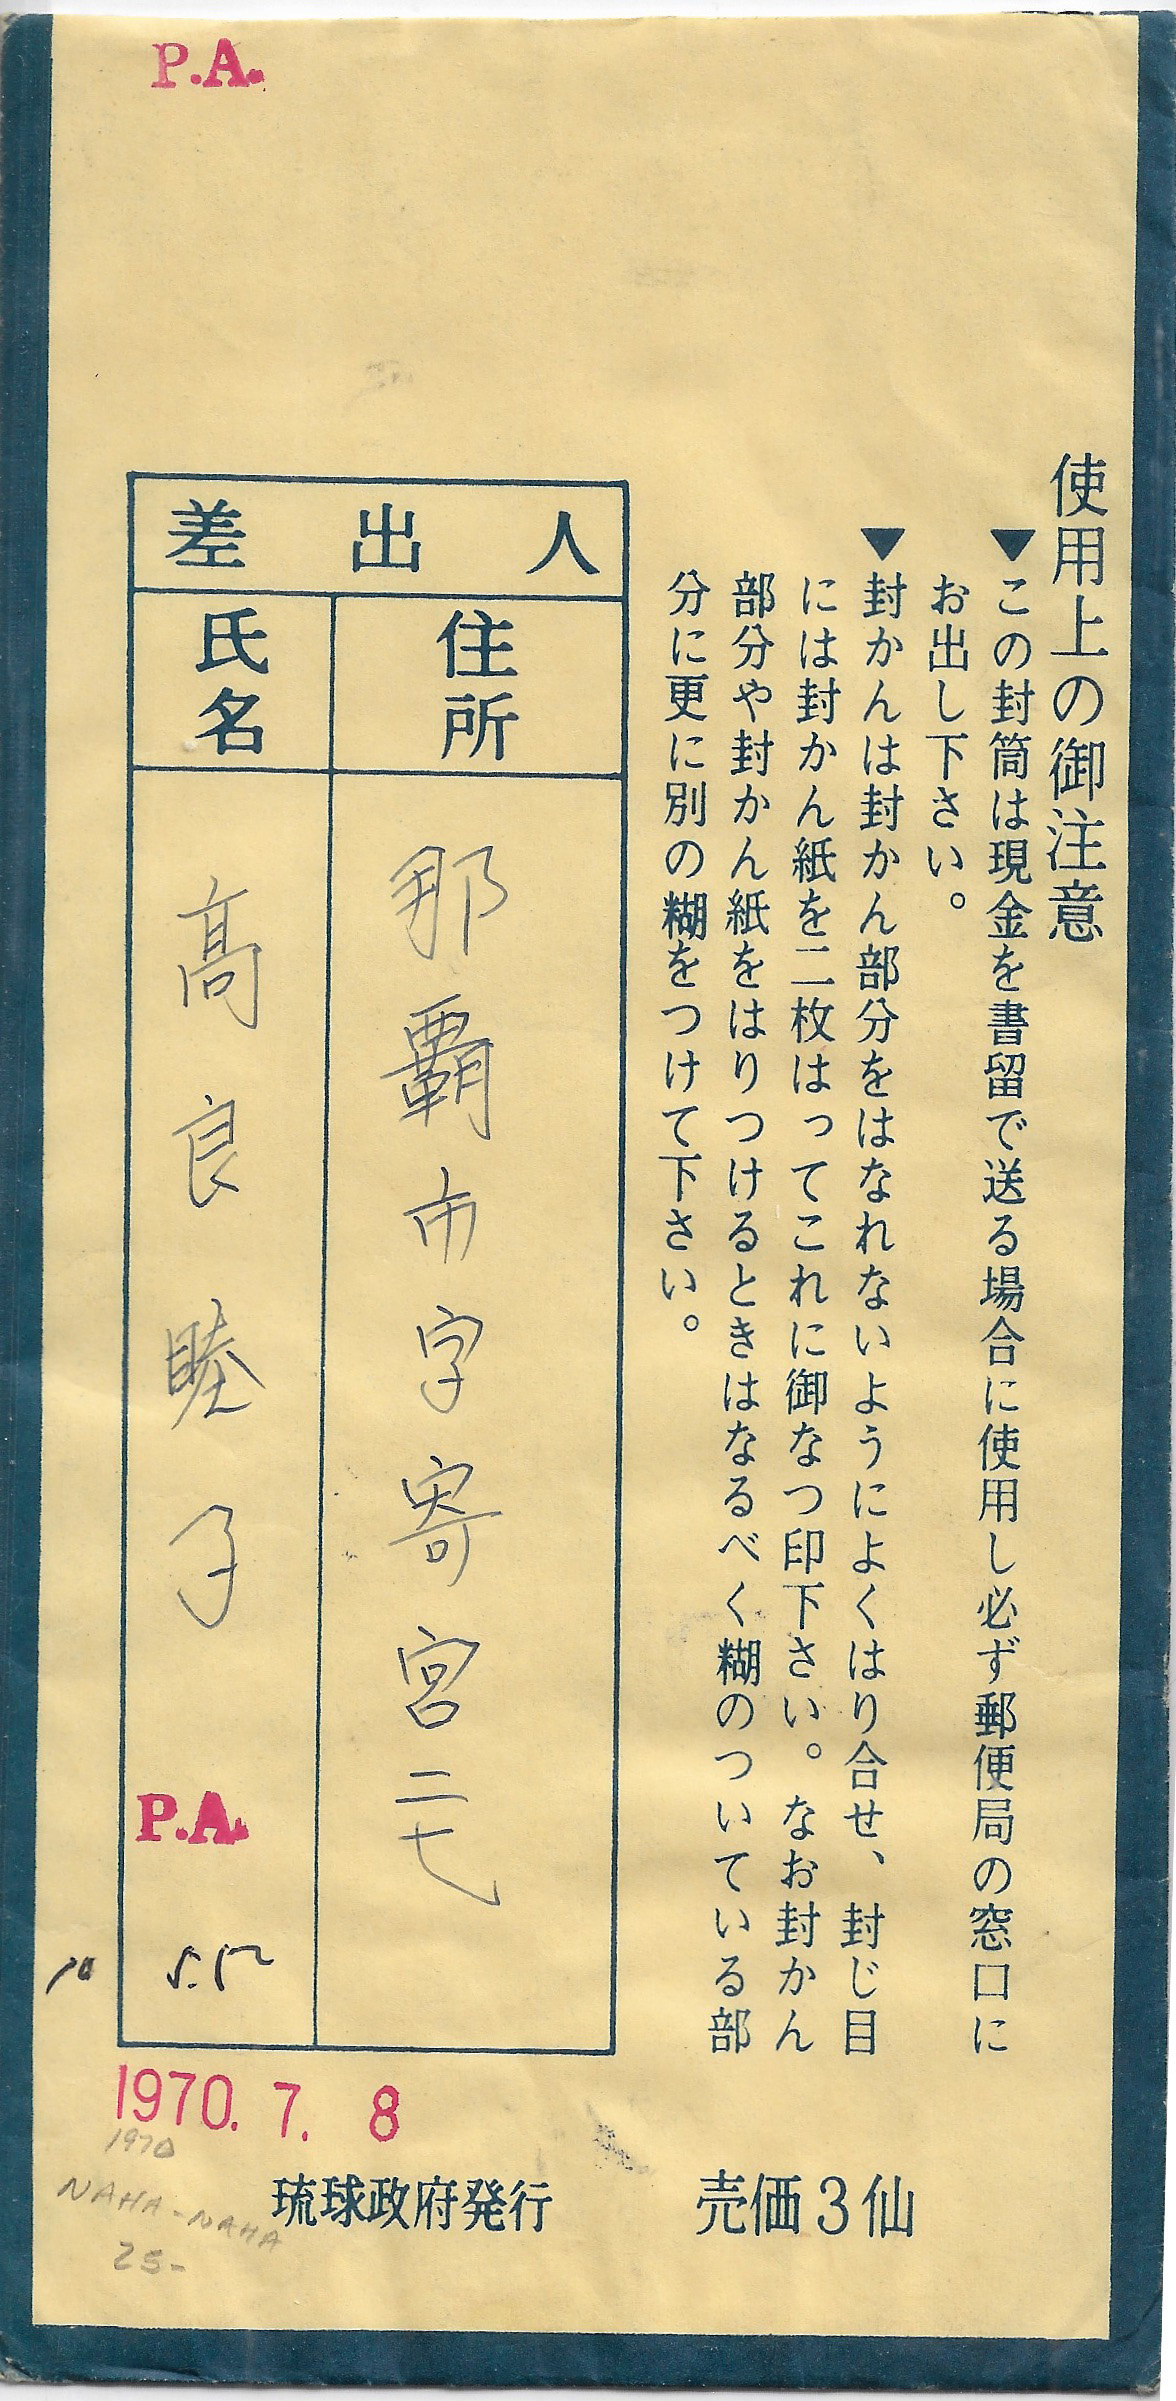 P.A.
使用上の御注意
▼この封筒は現金を書留で送る場合に使用し必ず郵便局の窓口に
お出し下さい。
▼封かんは封かん部分をはなれないようによくはり合せ、封じ目
には封かん紙を二枚はってこれに御なつ印下さい。なお封かん
部分や封かん紙をはりつけるときはなるべく糊のついている部
分に更に別の糊をつけて下さい。
差出人
住所
那覇市字寄宮二七
氏名
高良睦子
P.A.
1970. 7. 8
1970
NAHA-NAHA
25-
琉球政府発行
売価3仙